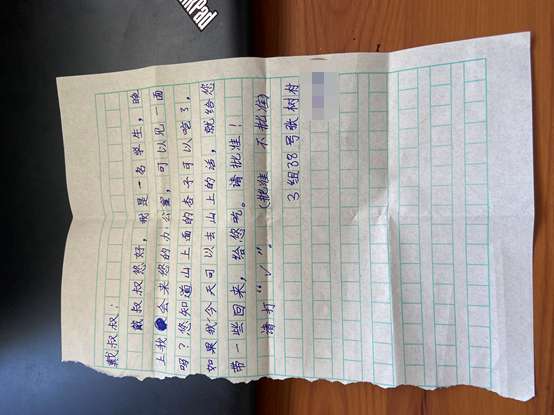 戴叔叔：
戴叔叔您好，我是一名学生，晚
上我会来您的办公室，可以见一面
吗？您知道山上面的杏子可以吃了，
如果我今天可以去山上的话，就给您
带一些回来，给您吃。请批准！
请打“√”。(批准 不批准)
3组38号张树村
nkPad